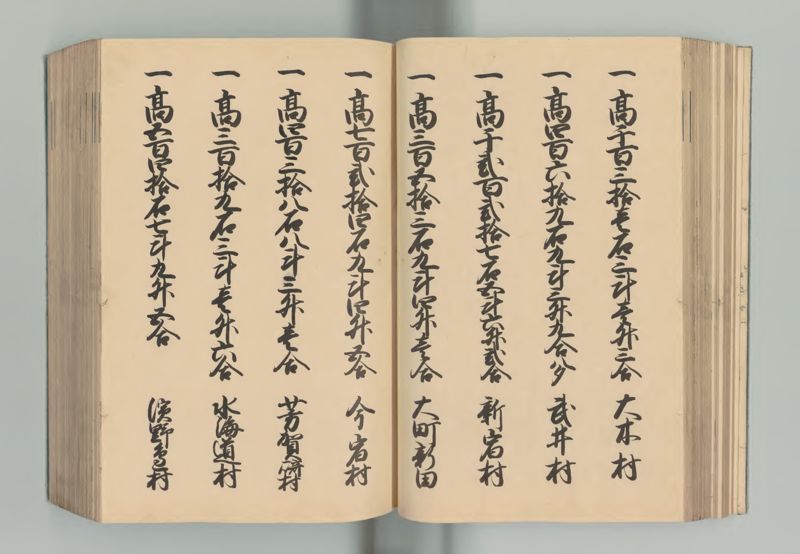 一高千百三拾壱石三斗壱升三合 大木村
一高四百六拾九石九斗三升九合夕 武井村
一高千弐百弐拾七石五斗六升弐合 新宿村
一高三百五拾三石九斗四升壱合 大町新田
一高七百弐拾四石九斗四升五合 今宿村
一高四百三拾八石八斗三升壱合 芳賀崎村
一高三百拾九石三斗壱升六合 水海道村
一高五百四拾石七斗九升五合 浜野辺村